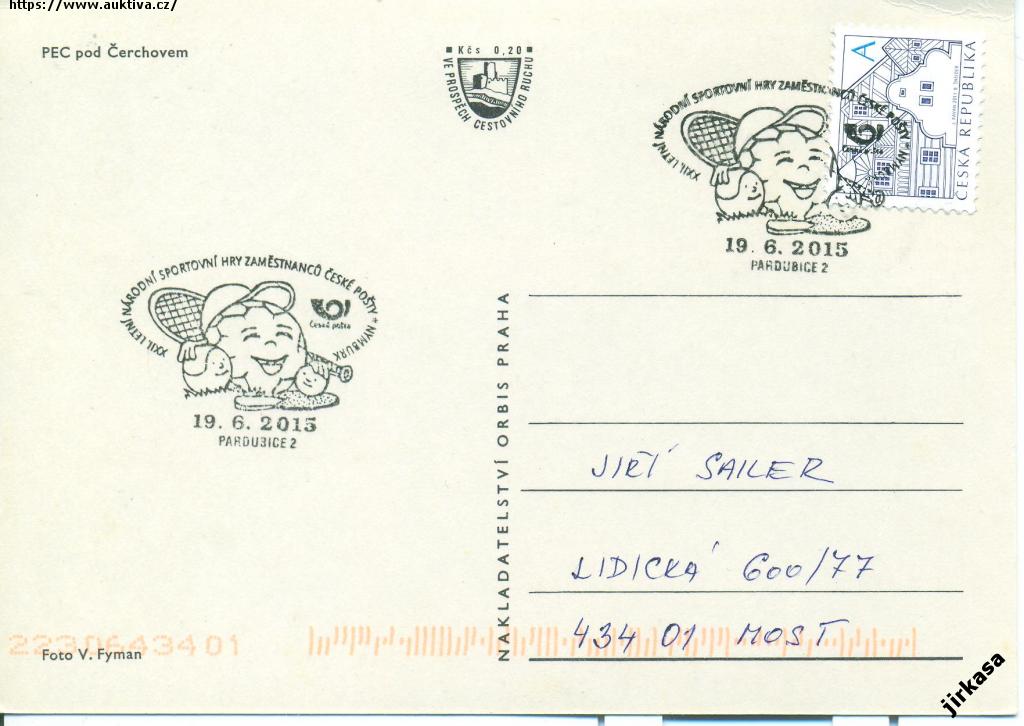 https://www.auktiva.cz/
PEC pod Čerchovem
Kčs 0,20
VE PROSPĚCH CESTOVNÍHO RUCHU
XXII. LETNÍ NÁRODNÍ SPORTOVNÍ HRY ZAMĚSTNANCŮ ČESKÉ POŠTY * NYMBURK
Česká pošta
19. 6. 2015
PARDUBICE 2
A
ČESKÁ REPUBLIKA
XXII. LETNÍ NÁRODNÍ SPORTOVNÍ HRY ZAMĚSTNANCŮ ČESKÉ POŠTY * NYMBURK
Česká pošta
19. 6. 2015
PARDUBICE 2
NAKLADATELSTVÍ ORBIS PRAHA
JIŘÍ SAILER
LIDICKÁ 600/77
434 01 MOST
2230643401
Foto V. Fyman
jirkasa